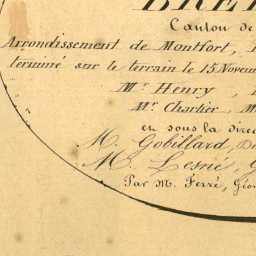 Canton de
Arrondissement de Montfort,
terminé sur le terrain le 15 Novem
Mr. Henry,
Mr. Chartier, M
en sous la direc
M. Gobillard, D
M. Lesné, G
Par M. Ferré, Géo